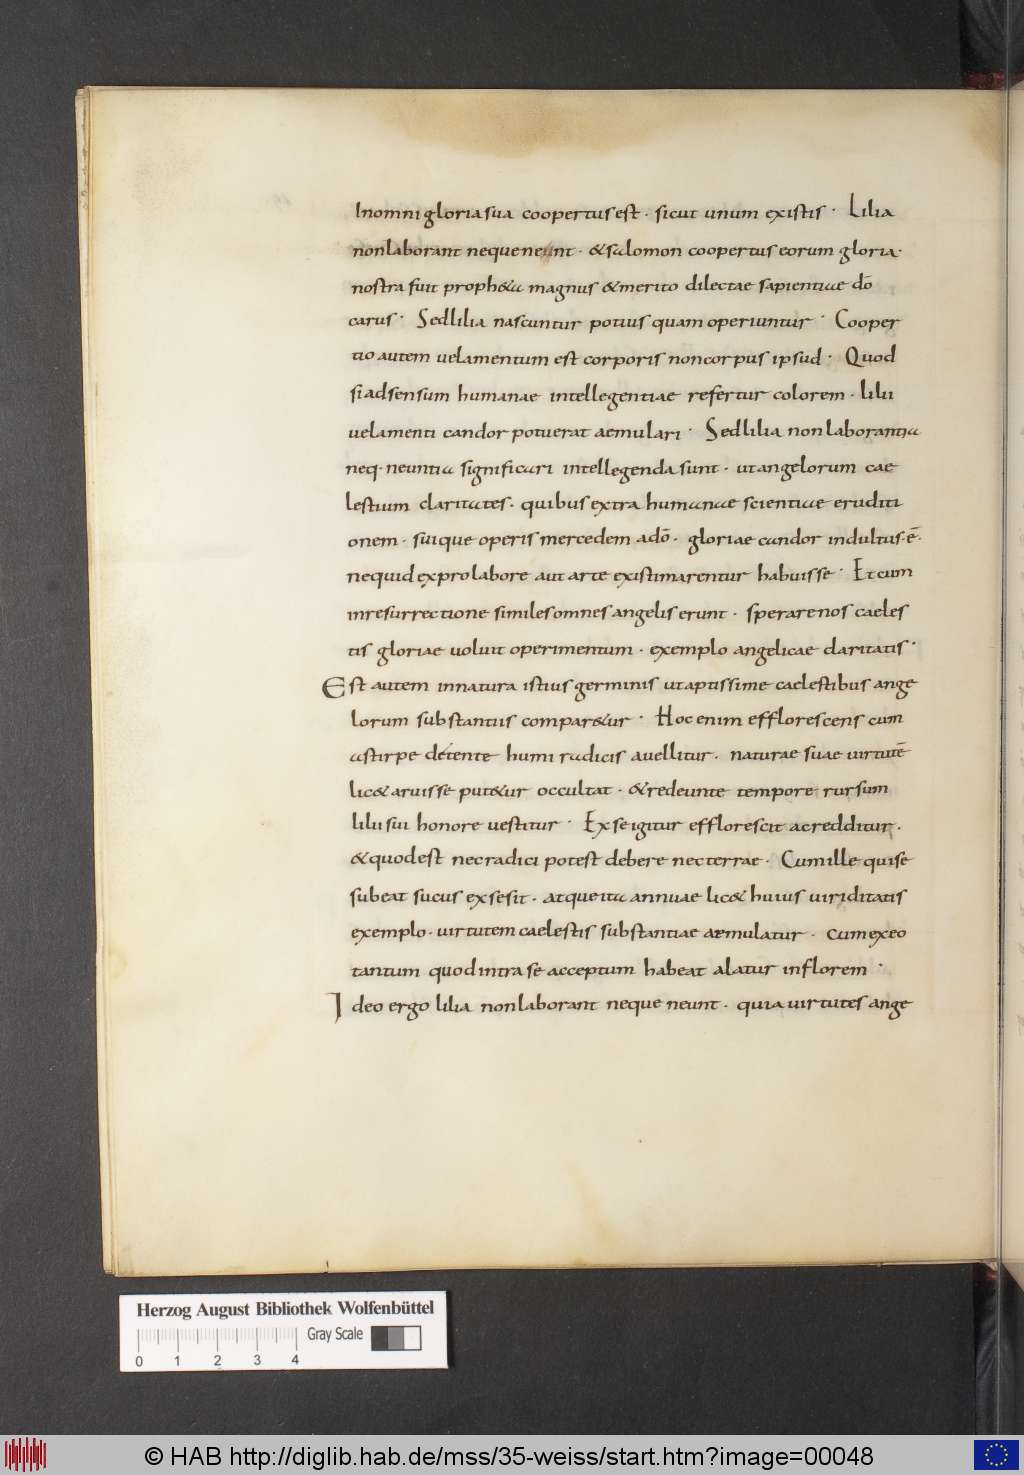 In omni gloria sua coopertus est · sicut unum ex istis · Lilia
non laborant neque neunt · & salomon coopertus eorum gloria ·
nostra fuit proph&a magnus & merito dilectae sapientiae dō
carus · Sed lilia nascuntur potius quam operiuntur · Cooper
tio autem uelamentum est corporis non corpus ipsud · Quod
si ad sensum humanae intellegentiae refertur colorem · lilii
uelamenti candor potuerat aemulari · Sed lilia non laborantia
neq· neuntia significari intellegenda sunt · ut angelorum cae
lestium claritates · quibus extra humanae scientiae eruditi
onem · suique operis mercedem a dō · gloriae candor indultus · ē ·
ne quid ex pro labore aut arte existimarentur habuisse · Et cum
in resurrectione similes omnes angelis erunt · sperare nos caeles
tis gloriae uoluit operimentum · exemplo angelicae claritatis ·
Est autem in natura istius germinis ut aptissime caelestibus ange
lorum substantiis compar&ur · Hoc enim efflorescens cum
a stirpe detente humi radicis auellitur · naturae suae uirtutē
lic& aruisse put&ur occultat · & redeunte tempore rursum
lilii sui honore uestitur · Ex se igitur efflorescit ac redditur ·
& quod est nec radici potest debere nec terrae · Cum ille qui se
subeat sucus ex se sit · atque ita annuae lic& huius uiriditatis
exemplo · uirtutem caelestis substantiae aemulatur · cum ex eo
tantum quod intra se acceptum habeat alatur in florem ·
Ideo ergo lilia non laborant neque neunt · quia uirtutes ange
Herzog August Bibliothek Wolfenbüttel
Gray Scale
0 1 2 3 4
© HAB http://diglib.hab.de/mss/35-weiss/start.htm?image=00048